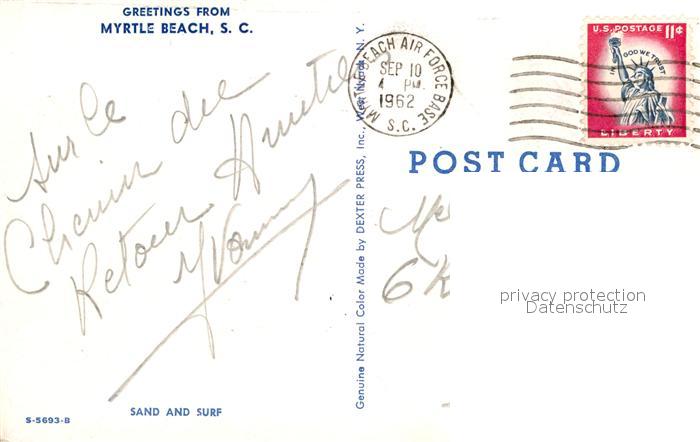 GREETINGS FROM
MYRTLE BEACH, S. C.
Sur le
Chemin du
Retour Amitiés
Yvonny
SAND AND SURF
S-5693-B
Genuine Natural Color Made by DEXTER PRESS, Inc., West Nyack, N. Y.
MYRTLE BEACH AIR FORCE BASE
SEP 10
4 PM
1962
S.C.
U.S. POSTAGE 11¢
IN GOD WE TRUST
LIBERTY
POST CARD
6
privacy protection
Datenschutz